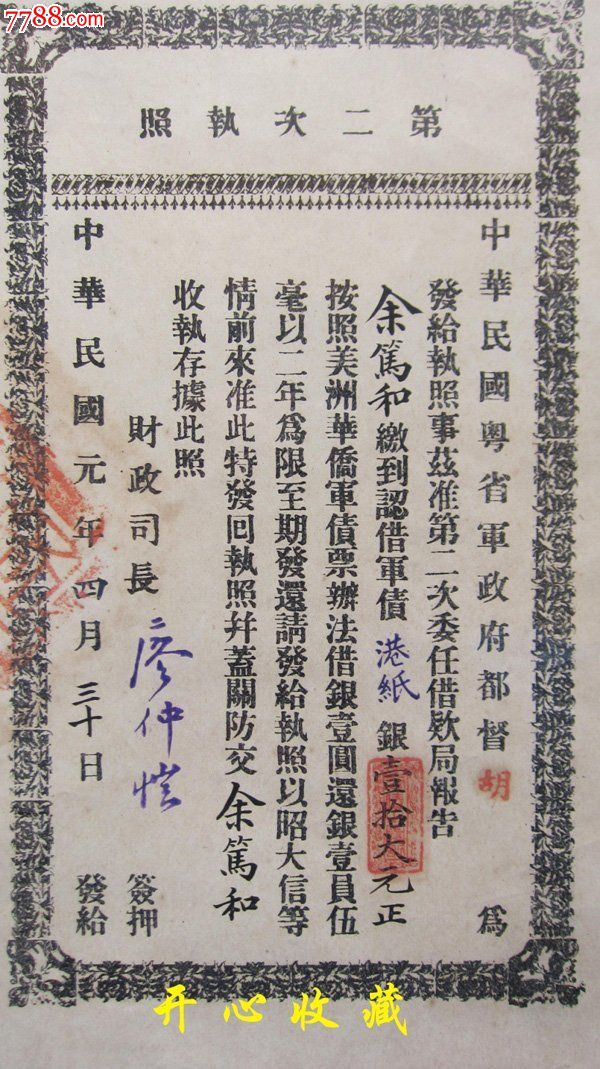 7788.com
第二次執照
中華民國粵省軍政府都督胡 爲
發給執照事茲准第二次委任借欵局報告
余篤和繳到認借軍債港紙銀壹拾大元正
按照美洲華僑軍債票辦法借銀壹圓還銀壹員伍
毫以二年爲限至期發還請發給執照以昭大信等
情前來准此特發回執照幷蓋關防交余篤和
收執存據此照
財政司長廖仲愷 簽押
中華民國元年四月三十日 發給
开心收藏